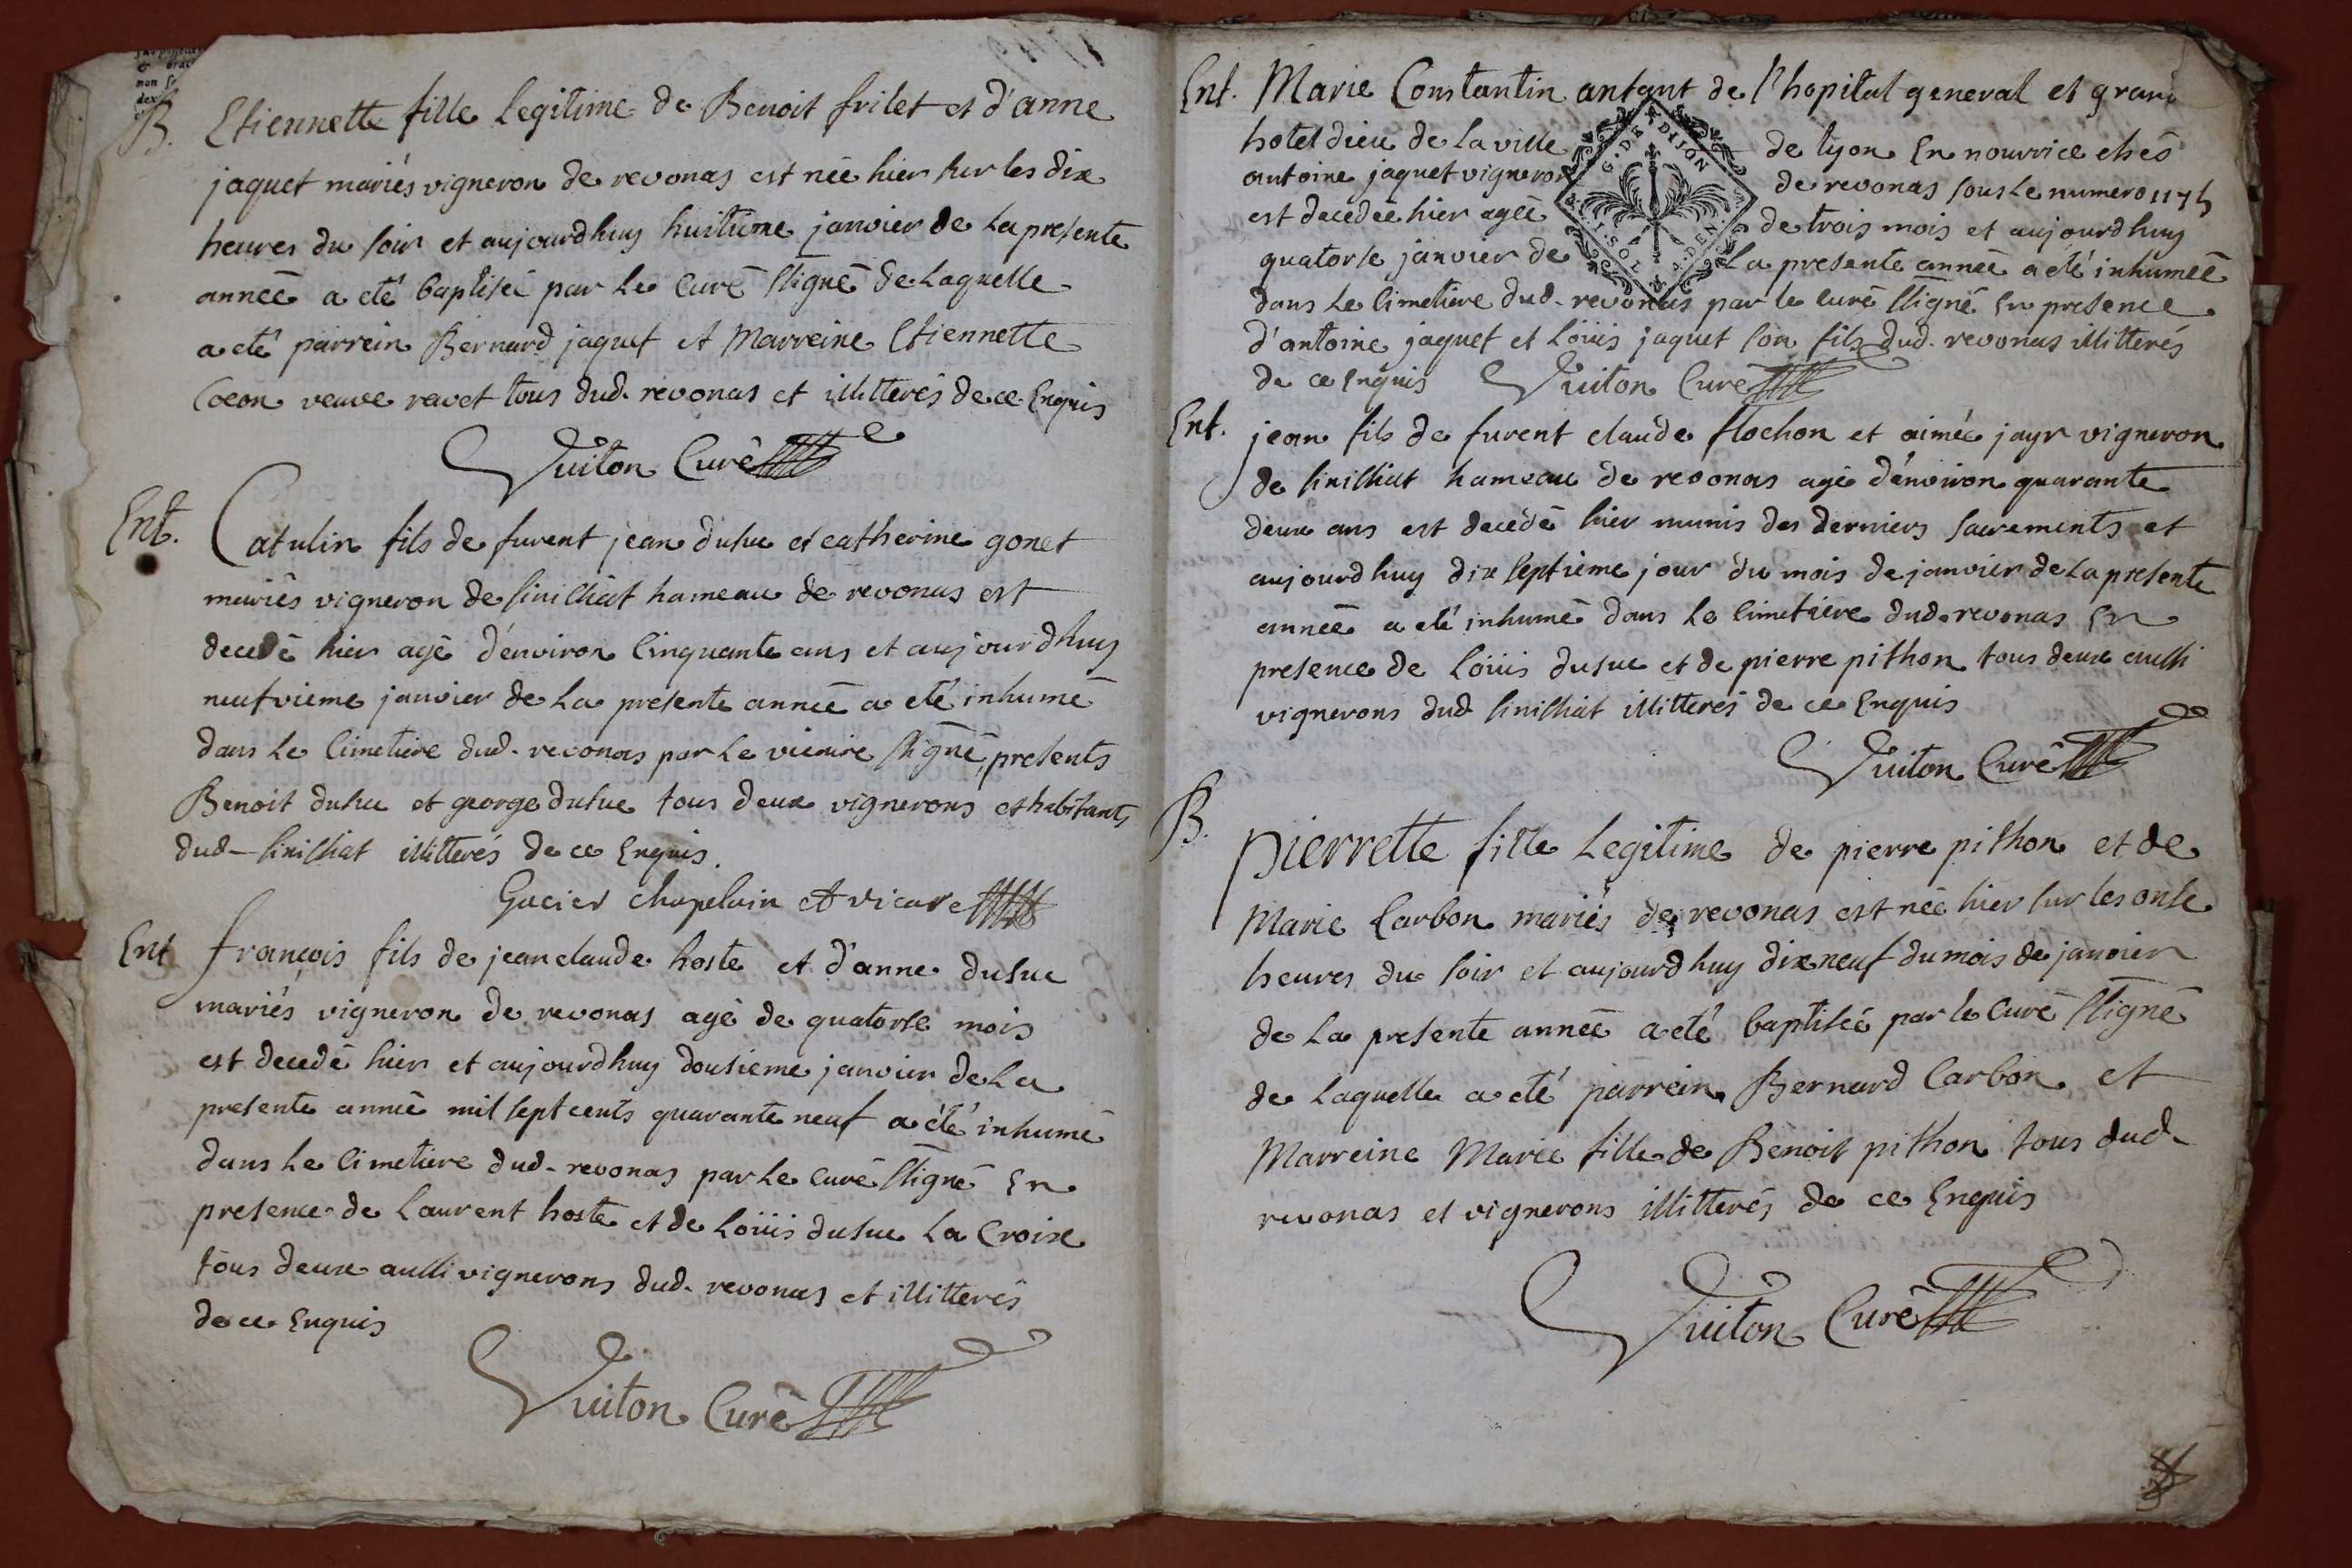 B. Etiennette fille legitime de Benoit frilet et d'anne
jaquet mariés vigneron de revonas est née hier sur les dix
heures du soir et aujourdhuy huitieme janvier de la presente
année a eté baptisée par le curé ssigné de laquelle
a eté parrein Bernard jaquet et Marreine Etiennette
veuve revet tous dud. revonas et illitterés de ce Enquis
Vuiton Curé
Ent. Catulin fils de furent jean dusuc et catherine gonet
mariés vigneron de sinissiat hameau de revonas est
decedé hier agé d'environ cinquante ans et aujourdhuy
neufvieme janvier de la presente année a eté inhumé
dans le cimetiere dud. revonas par le vicaire ssigné, presents
Benoit dusuc et george dusuc tous deux vignerons et habitants
dud. sinissiat illitterés de ce Enquis.
Gacier chapelain et vicare
Ent françois fils de jean claude hoste et d'anne dusuc
mariés vigneron de revonas agé de quatorse mois
est decedé hier et aujourdhuy dousieme janvier de la
presente année mil sept cents quarante neuf a été inhumé
dans le cimetiere dud. revonas par le curé ssigné En
presence de Laurent hoste et de Loüis dusuc La Croix
tous deux aussi vignerons dud. revonas et illitterés
de ce Enquis
Vuiton Curé
Ent. Marie Constantin anfant de l'hopital general et grand
hotel dieu de la ville de lyon En nourrice chés
antoine jaquet vigneron de revonas sous le numero
est decedée hier agée de trois mois et aujourdhuy
quatorse janvier de la presente année a eté inhumée
dans le cimetiere dud. revonas par le curé ssigné En presence
d'antoine jaquet et Loüis jaquet son fils dud. revonas illitterés
de ce Enquis Vuiton Curé
G. DE DIJON
Ent. jean fils de furent claude flochon et aimée jayr vigneron
de sinissiat hameau de revonas agé d'environ quarante
deux ans est decedé hier munis des derniers sacrements et
aujourdhuy dix septieme jour du mois de janvier de la presente
année a eté inhumé dans le cimetiere dud. revonas En
presence de Loüis dusuc et de pierre pithon tous deux aussi
vignerons dud sinissiat illitterés de ce Enquis
Vuiton Curé
B. pierrette fille legitime de pierre pithon et de
Marie Carbon mariés de revonas est née hier sur les onse
heures du soir et aujourdhuy dix neuf du mois de janvier
de la presente année a eté baptisée par le curé ssigné
de laquelle a eté parrein Bernard Carbon et
Marreine Marie fille de Benoit pithon tous dud.
revonas et vignerons illitterés de ce Enquis
Vuiton Curé